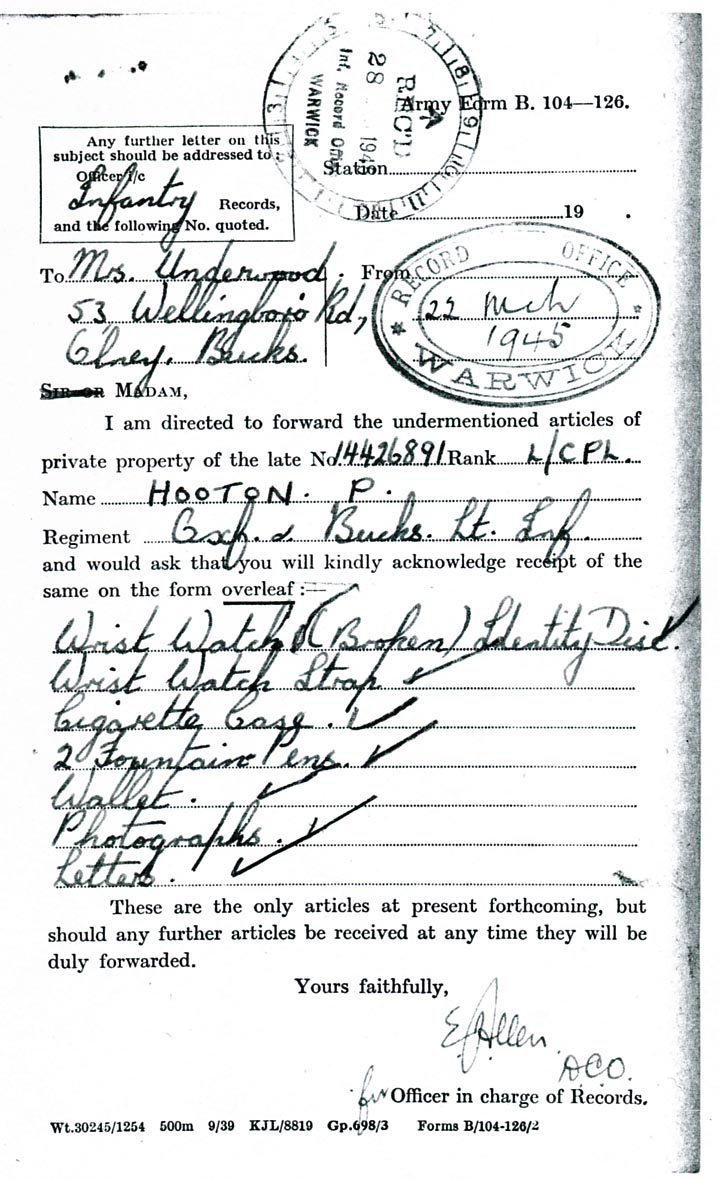 REC'D
28 194
Inf. Record Office
WARWICK
Army Form B. 104—126.
Any further letter on this
subject should be addressed to :
Officer i/c
Infantry Records,
and the following No. quoted.
Station
Date 19 .
To Mrs. Underwood. From
53 Wellingboro Rd,
Olney. Bucks.
RECORD OFFICE
22 Mch
1945
WARWICK
SIR OR MADAM,
I am directed to forward the undermentioned articles of
private property of the late No. 14426891 Rank L/CPL.
Name HOOTON. P.
Regiment Oxf. & Bucks. Lt. Inf.
and would ask that you will kindly acknowledge receipt of the
same on the form overleaf :—
Wrist Watch (Broken) Identity Disc.
Wrist Watch Strap
Cigarette Case.
2 Fountain Pens.
Wallet.
Photographs.
Letters.
These are the only articles at present forthcoming, but
should any further articles be received at any time they will be
duly forwarded.
Yours faithfully,
Allen
ACO.
for Officer in charge of Records.
Wt.30245/1254 500m 9/39 KJL/8819 Gp.698/3 Forms B/104-126/2